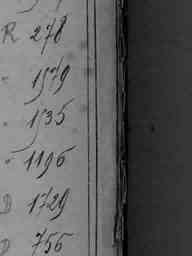 R 278
" 1579
" 1535
" 1196
D 1729
D 756